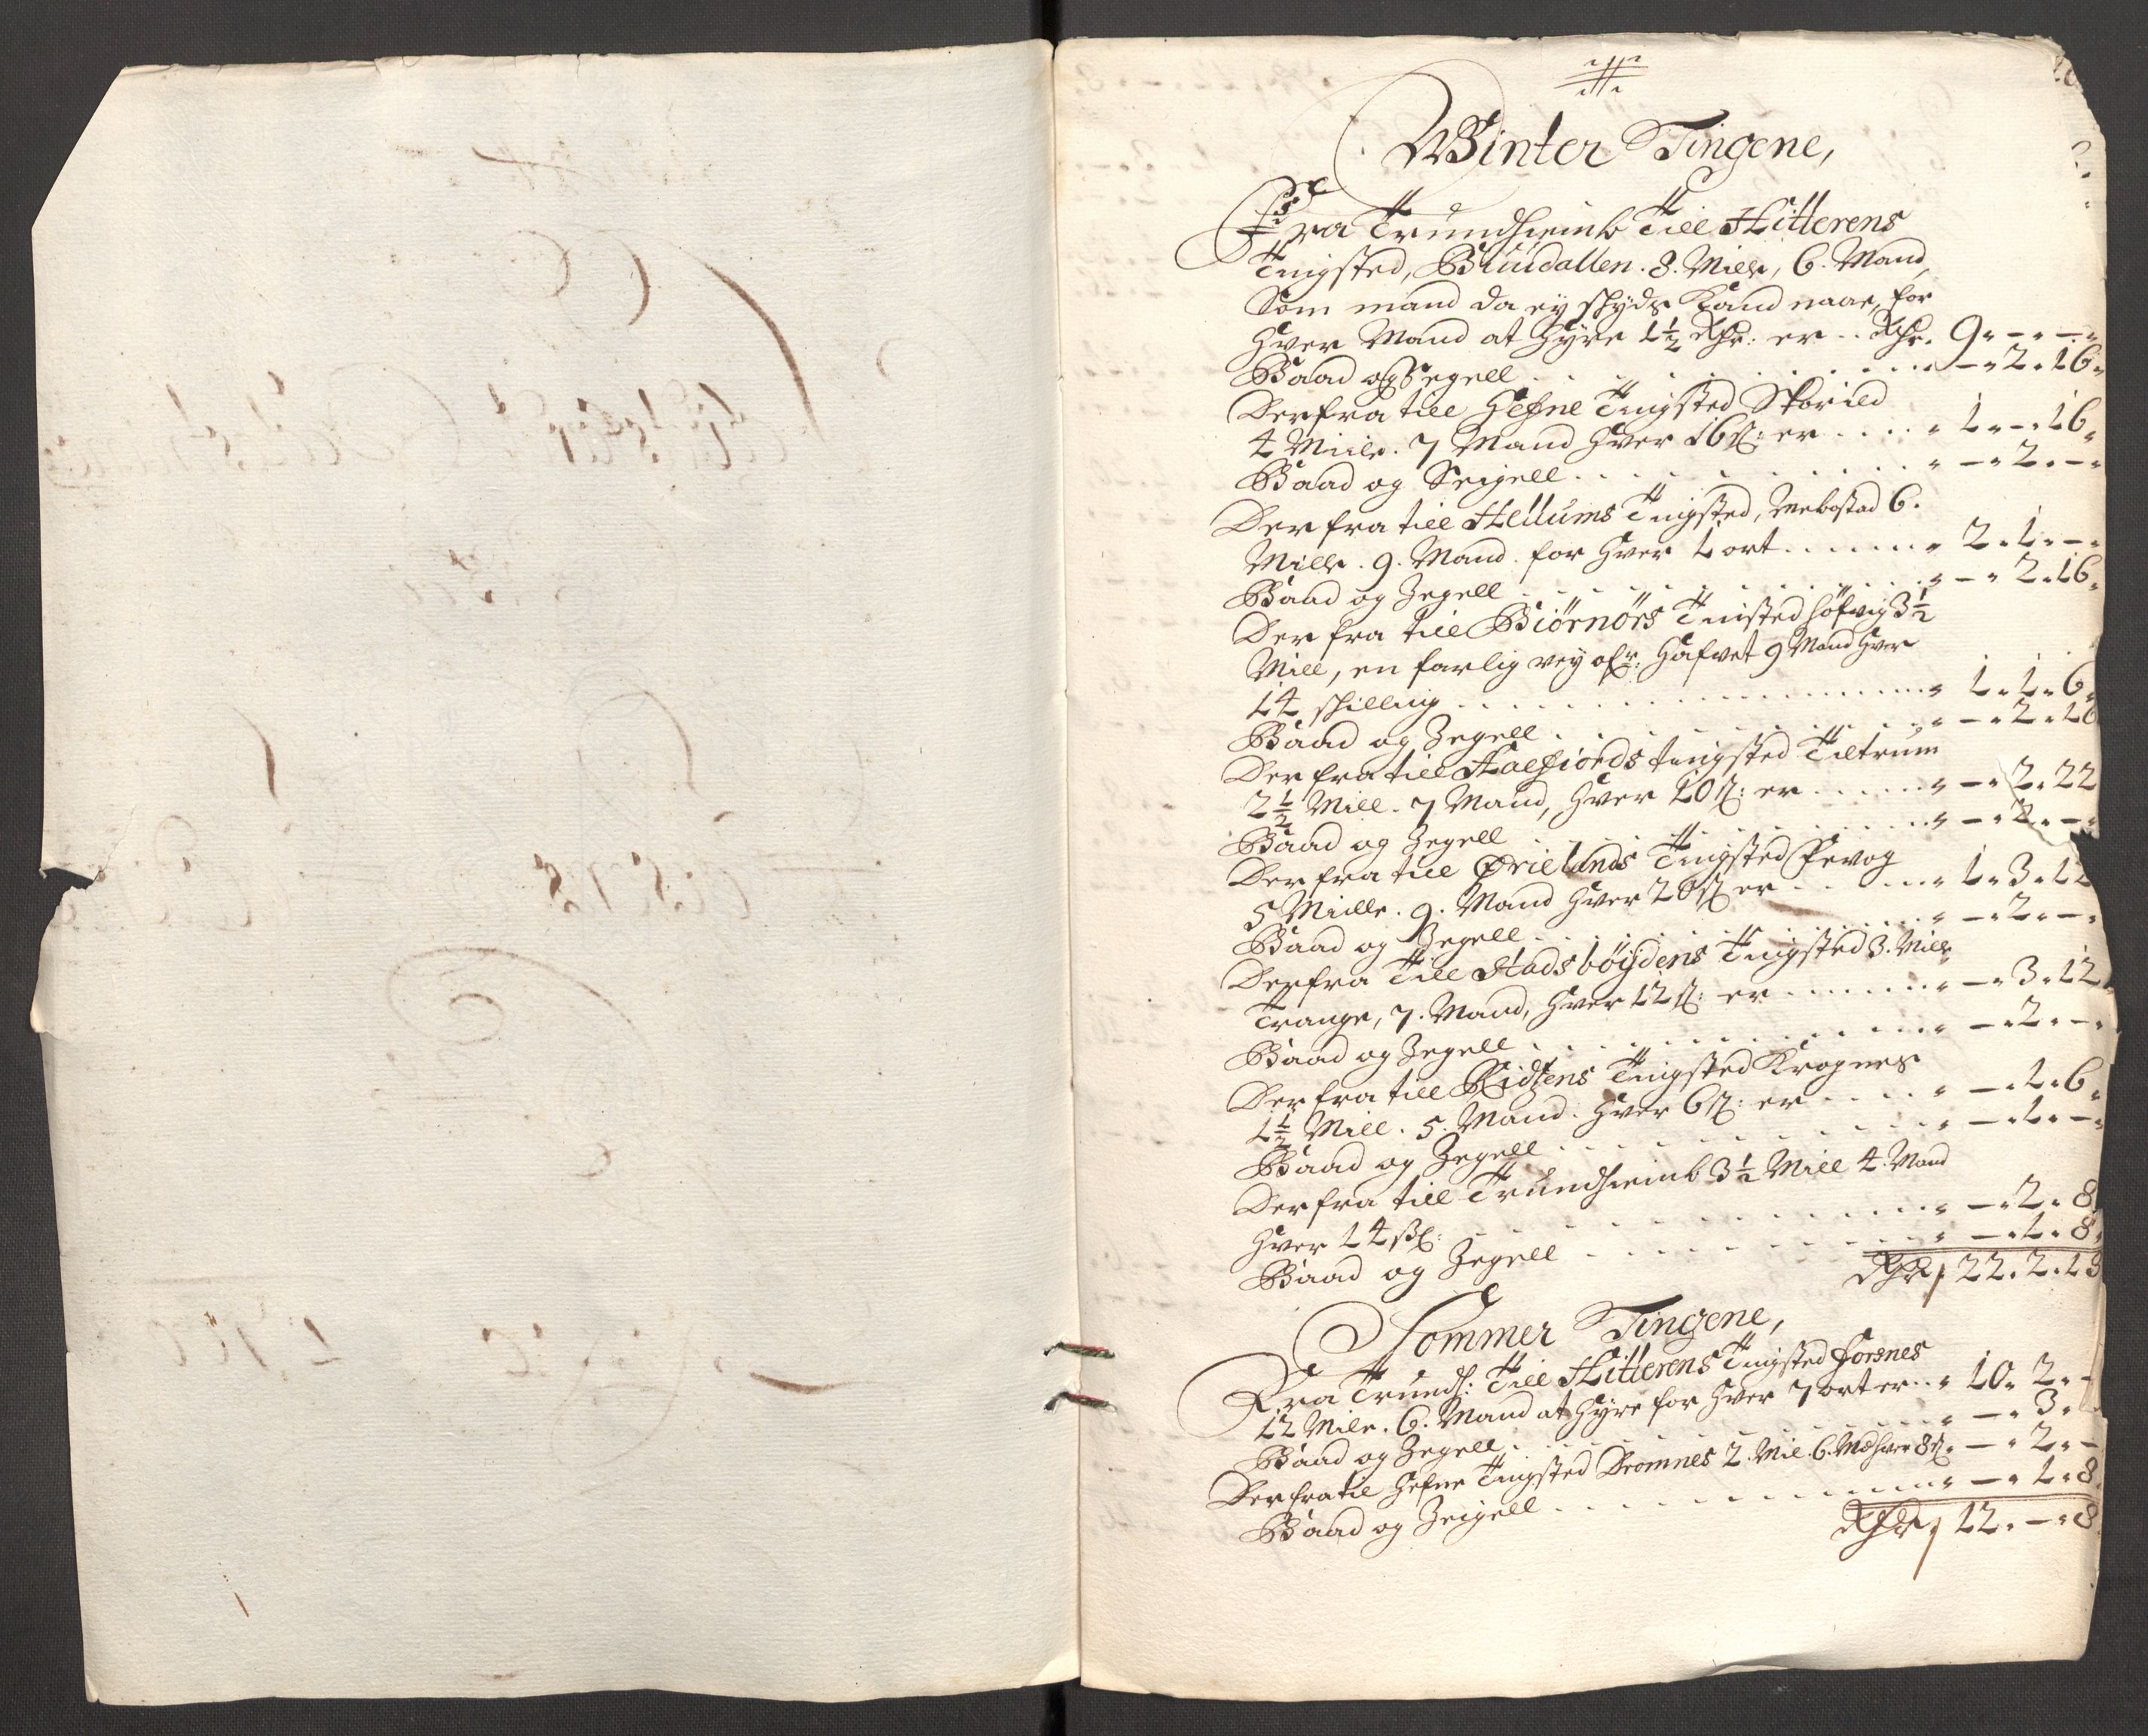 Winter Tingene,
Fra Trundhiemb Till Hitterens
Tingsted, 8. Mille, 6. Mand,
Som mand da ey skyds kand naae, for
hver Mand at hyre 1½ Rdr: er .. Rdr. 9. - . - .
Baad og Segell . . . . - . 2. 16.
Derfra till Hefne Tingsted
4 Miile. 7 Mand hver 16 s: er . . . . 1. - . 16.
Baad og Seigell . . . . - . 2. - .
Derfra till Hellums Tingsted, Mebostad 6.
Mille. 9. Mand. for hver 1 ort . . . . 2. 1. - .
Baad og Zegell . . . . - . 2. 16.
Der fra till Biørnørs Tingsted Hofvig 3½
Mill, en farlig vey ofr: Hafvet 9 Mand hver
14 skilling . . . . 1. 1. 6.
Baad og Zegell . . . . - . 2. 16
Der fra till tingsted Tiltrum
2½ Mill. 7 Mand, hver 10 s: er . . . . - . 2. 22
Baad og Zegell . . . . - . 2. - .
Der fra till Ørielands Tingsted
5 Mille. 9. Mand hver 20 s er . . . . 1. 3. 12
Baad og Zegell . . . . - . 2. - .
Derfra Till Stadsbøydens Tingsted 3. Mille
7. Mand, hver 12 s: er . . . . - . 3. 12
Baad og Zegell . . . . - . 2. - .
Der fra till Ridsens Tingsted Krognes
1½ Mill. 5. Mand. hver 6 s: er . . . . - . 1. 6.
Baad og Zegell . . . . - . 1. - .
Der fra till Trundhiemb 3½ Mill 4. Mand
hver 14 s: . . . . - . 2. 8.
Baad og Zegell . . . . - . 1. 8.
Rdr, 22. 2. 18
Sommer Tingene,
Fra Trundh: Till Hitterens Tingsted Forsnes
12 Mile. 6. Mand at hyre for hver 7 ort er . . 10. 2. -
Baad og Zegell . . . . - . 3.
Der fra till Hefne Tingsted Dromnes 2. Mil. 6. Md hver 8 s. - . 2. -
Baad og Zeigell . . . . - . 1. 8.
Rdr, 12. - . 8